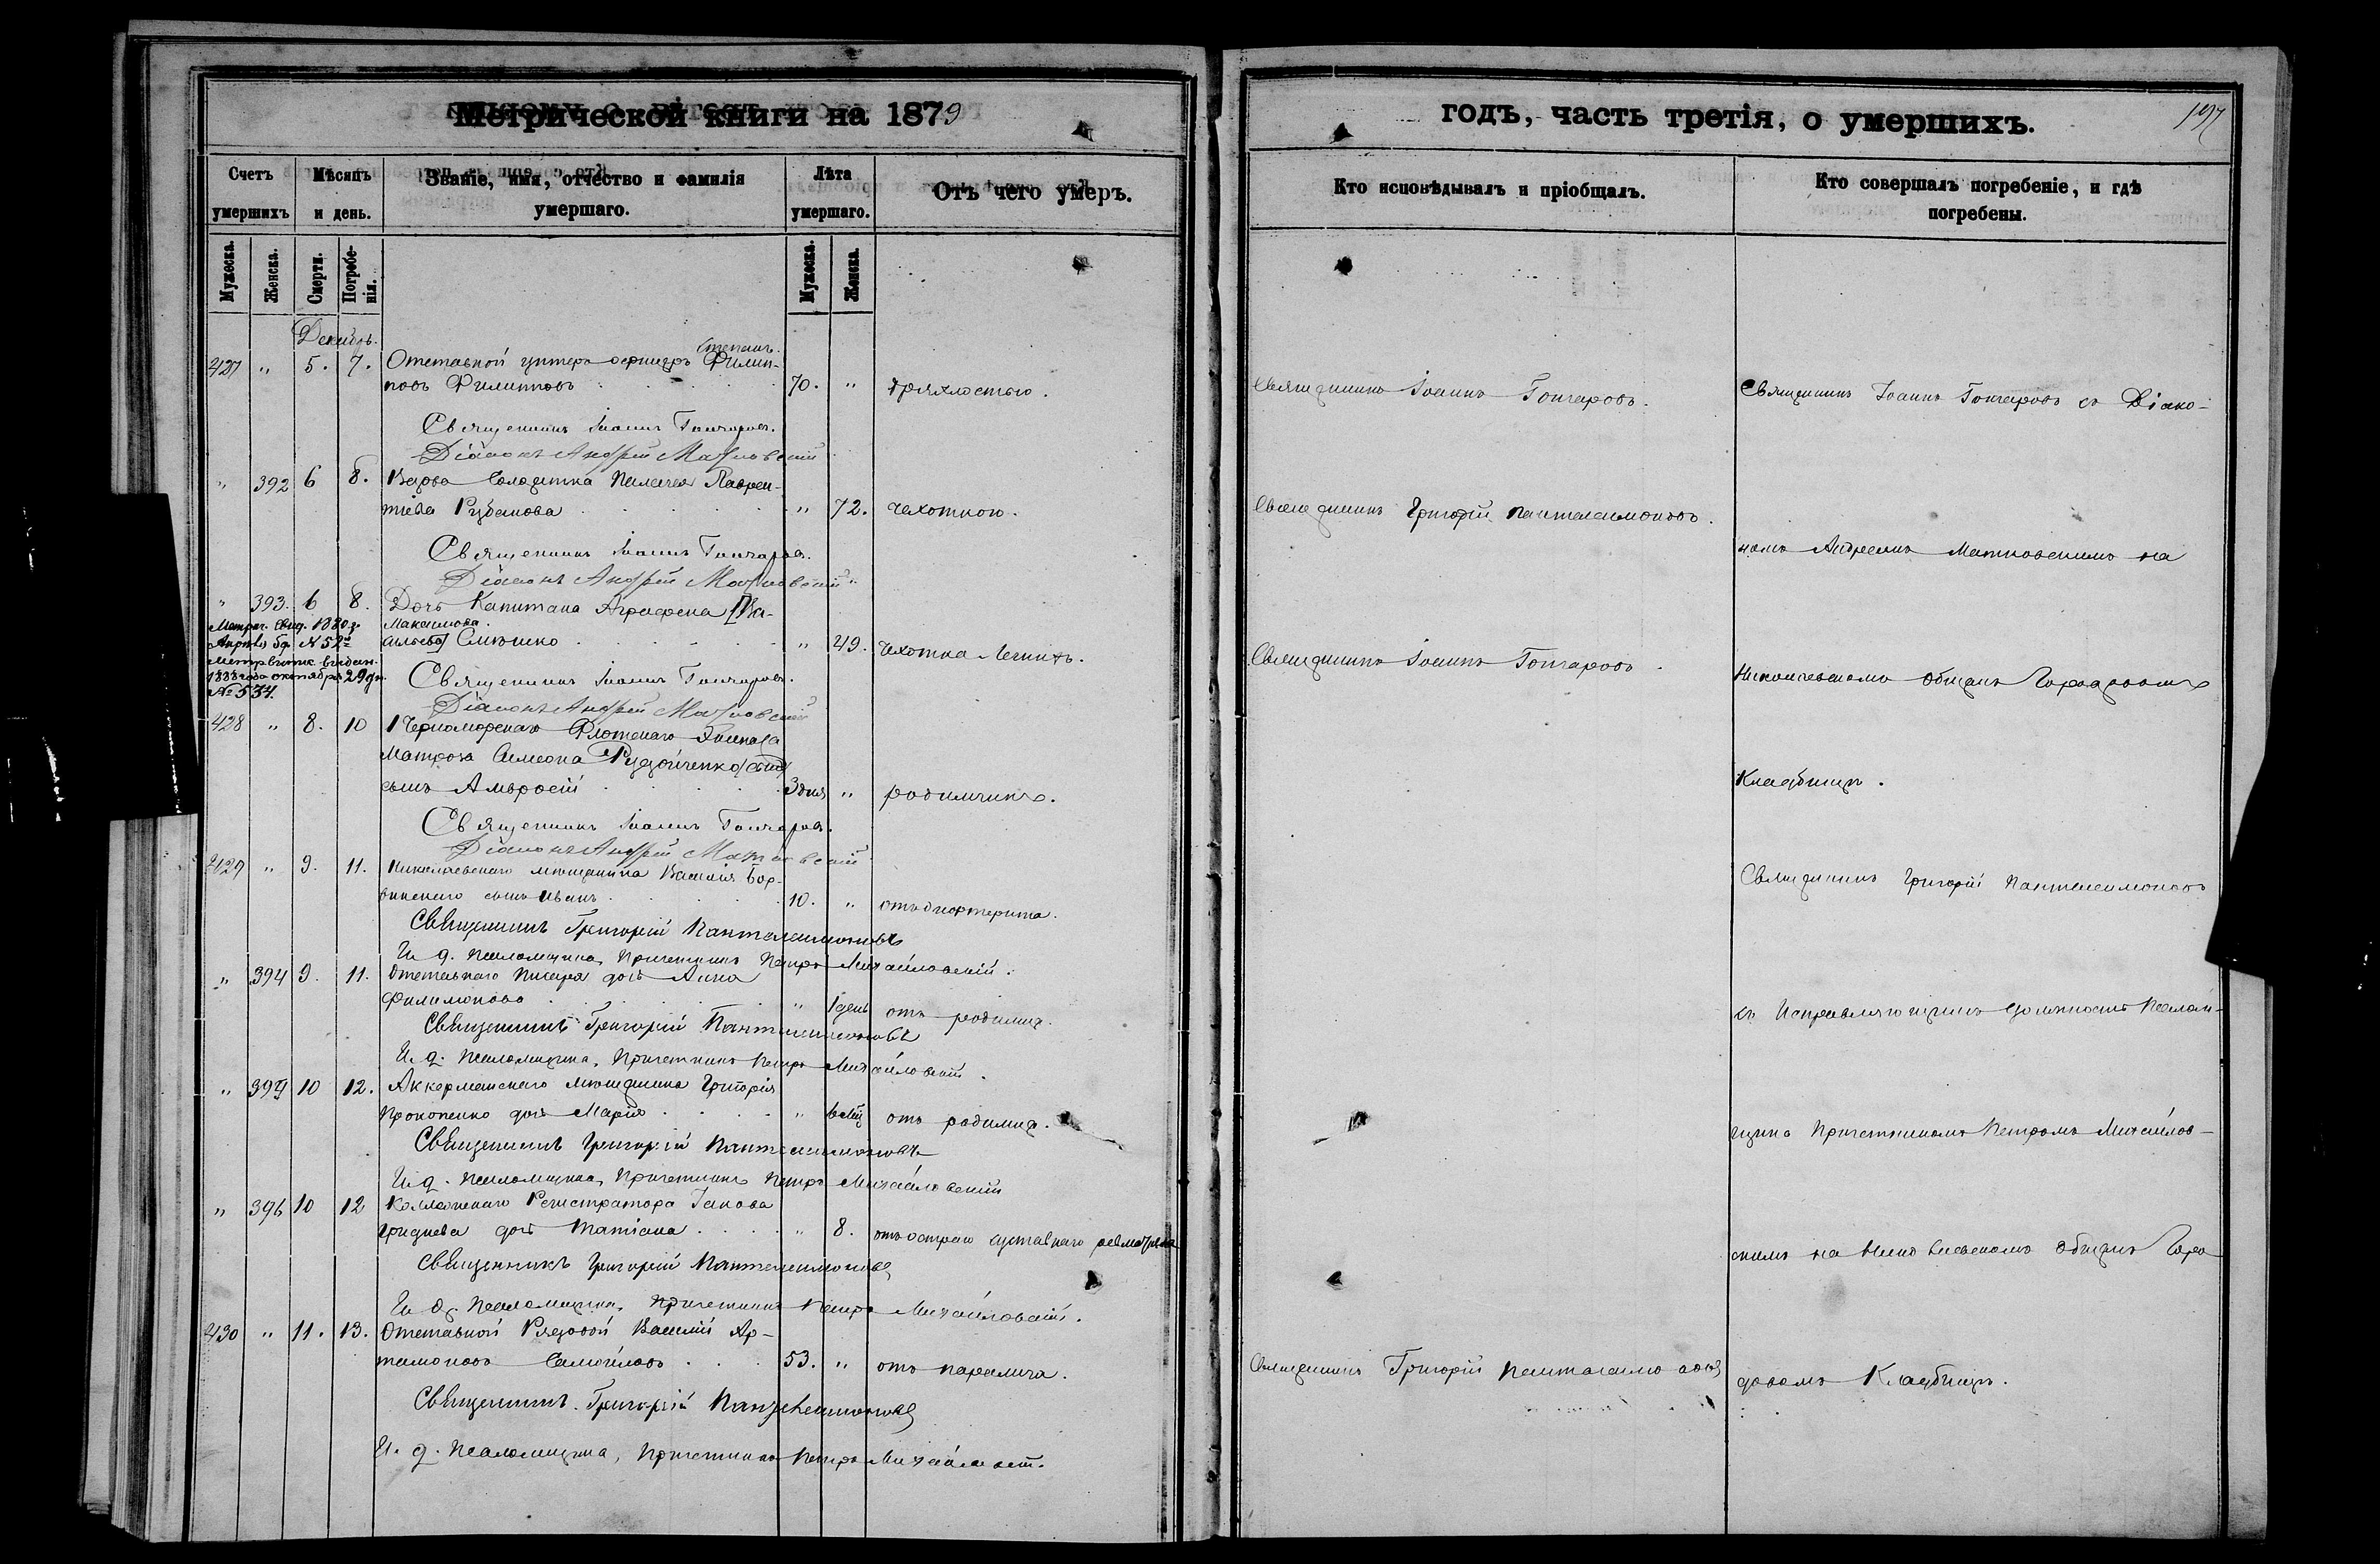 Метрической книги на 1879
годъ, часть третія, о умершихъ.
197
Счетъ умершихъ
Мѣсяцъ и день.
Званіе, имя, отчество и фамилія умершаго.
Лѣта умершаго.
Отъ чего умеръ.
Кто исповѣдывалъ и пріобщалъ.
Кто совершалъ погребеніе, и гдѣ погребены.
Мужеска.
Женска.
Смерти.
Погребенія.
Мужеска.
Женска.
Декабрь.
Степанъ.
427 " 5. 7. Отставной унтеръ офицеръ Филип-
повъ Филипповъ 70. " дряхлостью. Священникъ Іоаннъ Гончаровъ. Священникъ Іоаннъ Гончаровъ съ Діако-
Священникъ Іоаннъ Гончаровъ.
Діаконъ Андрей Матковскій
" 392 6 8. Вдова Солдатка Пелагея Лаврен-
тіева Рубанова " 72. чахоткою. Священникъ Григорій Пантелеимоновъ.
Священникъ Іоаннъ Гончаровъ.
номъ Андреемъ Матковскимъ на
Діаконъ Андрей Матковскій
" 393. 6 8. Дочь Капитана Агрофена [Ва-
Метрич. свид. 1880 г. Максимова.
Апрѣля 5 д. № 52 сильева] " 49. чахотка легкихъ. Священникъ Іоаннъ Гончаровъ.
выдан.
1888 года октября 29 дн.
№ 534.
Священникъ Іоаннъ Гончаровъ.
Николаевскомъ общемъ Городскомъ
Діаконъ Андрей Матковскій
428 " 8. 10 1 Черноморскаго Флотскаго Экипажа
Матроза Симеона
сынъ Амвросій 3 дня " родимчикъ.
Кладбищѣ.
Священникъ Іоаннъ Гончаровъ.
Діаконъ Андрей Матковскій
429 " 9. 11. Николаевскаго мѣщанина Василія Бор-
сынъ Иванъ 10. " отъ дифтерита.
Священникъ Григорій Пантелеимоновъ
Священникъ Григорій Пантелеимоновъ
И. д. Псаломщика, Причетникъ Петръ Михайловскій.
" 394 9. 11. Отставнаго Писаря дочь Анна
Филимонова " 1 день отъ родимца.
съ Исправляющимъ должность Псалом-
Священникъ Григорій Пантелеимоновъ
И. д. Псаломщика, Причетникъ Петръ Михайловскій.
" 395 10 12. Аккерманскаго мѣщанина Григорія
Прокопенко дочь Марія " 6 мѣс отъ родимца.
щика Причетникомъ Петромъ Михайлов-
Священникъ Григорій Пантелеимоновъ
И. д. Псаломщика, Причетникъ Петръ Михайловскій
" 396 10 12 Коллежскаго Регистратора Іакова
Гриднева дочь Татіана " 8. отъ остраго суставнаго ревматизма
скимъ на Николаевскомъ общемъ Горо-
Священникъ Григорій Пантелеимоновъ
И. д. Псаломщика, Причетникъ Петръ Михайловскій.
430 " 11. 13. Отставной Рядовой Василій Ар-
тамоновъ Самойловъ 53. " отъ паралича. Священникъ Григорій Пантелеимоновъ
дскомъ Кладбищѣ.
Священникъ Григорій Пантелеимоновъ
И. д. Псаломщика, Причетникъ Петръ Михайловскій.